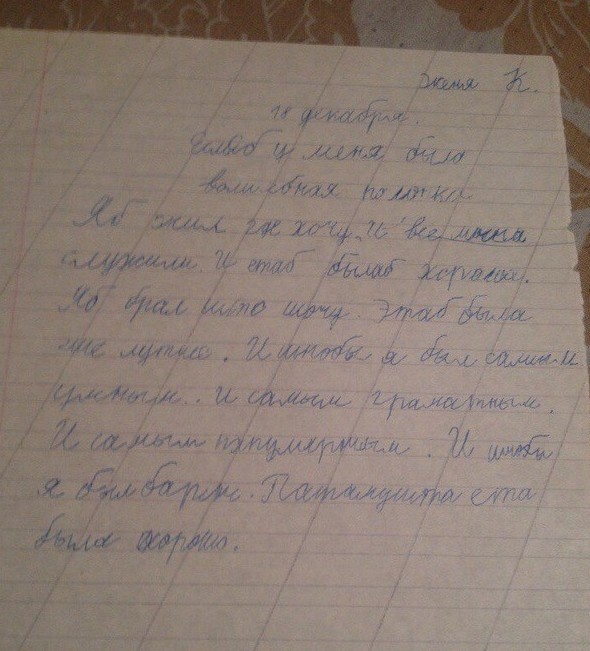 Женя К.
18 декабря.
Еслеб у меня была
волшебная палочка
Яб жил где хочу. И все меня
служили. И етаб былаб харашо.
Яб брал што хочу. Этаб была
ище лутшо. И штобы я был самым
умным. И самым граматным.
И самым папулярным. И штобы
я был барин. Патамушта ета
была хорошо.